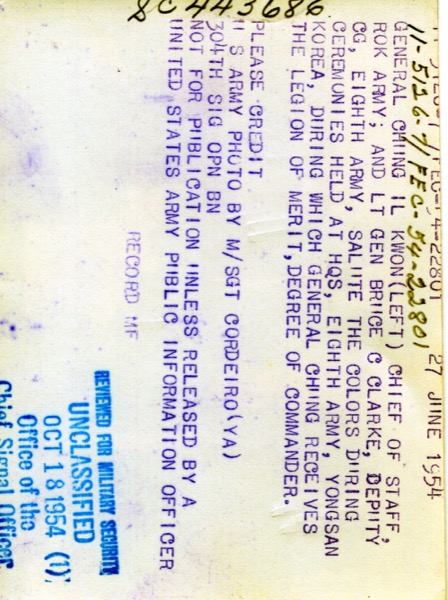 SC 443686
11-5126-7/FEC-54-22801
27 JUNE 1954
GENERAL CHUNG IL KWON(LEFT) CHIEF OF STAFF,
ROK ARMY; AND LT GEN BRUCE C CLARKE, DEPUTY
CG, EIGHTH ARMY, SALUTE THE COLORS DURING
CEREMONIES HELD AT HQS, EIGHTH ARMY, YONGSAN
KOREA, DURING WHICH GENERAL CHUNG RECEIVES
THE LEGION OF MERIT, DEGREE OF COMMANDER.
PLEASE CREDIT
U S ARMY PHOTO BY M/SGT CORDEIRO(YA)
304TH SIG OPN BN
NOT FOR PUBLICATION UNLESS RELEASED BY A
UNITED STATES ARMY PUBLIC INFORMATION OFFICER
RECORD MF
REVIEWED FOR MILITARY SECURITY
UNCLASSIFIED
OCT 18 1954 (1)
Office of the
Chief Signal Officer